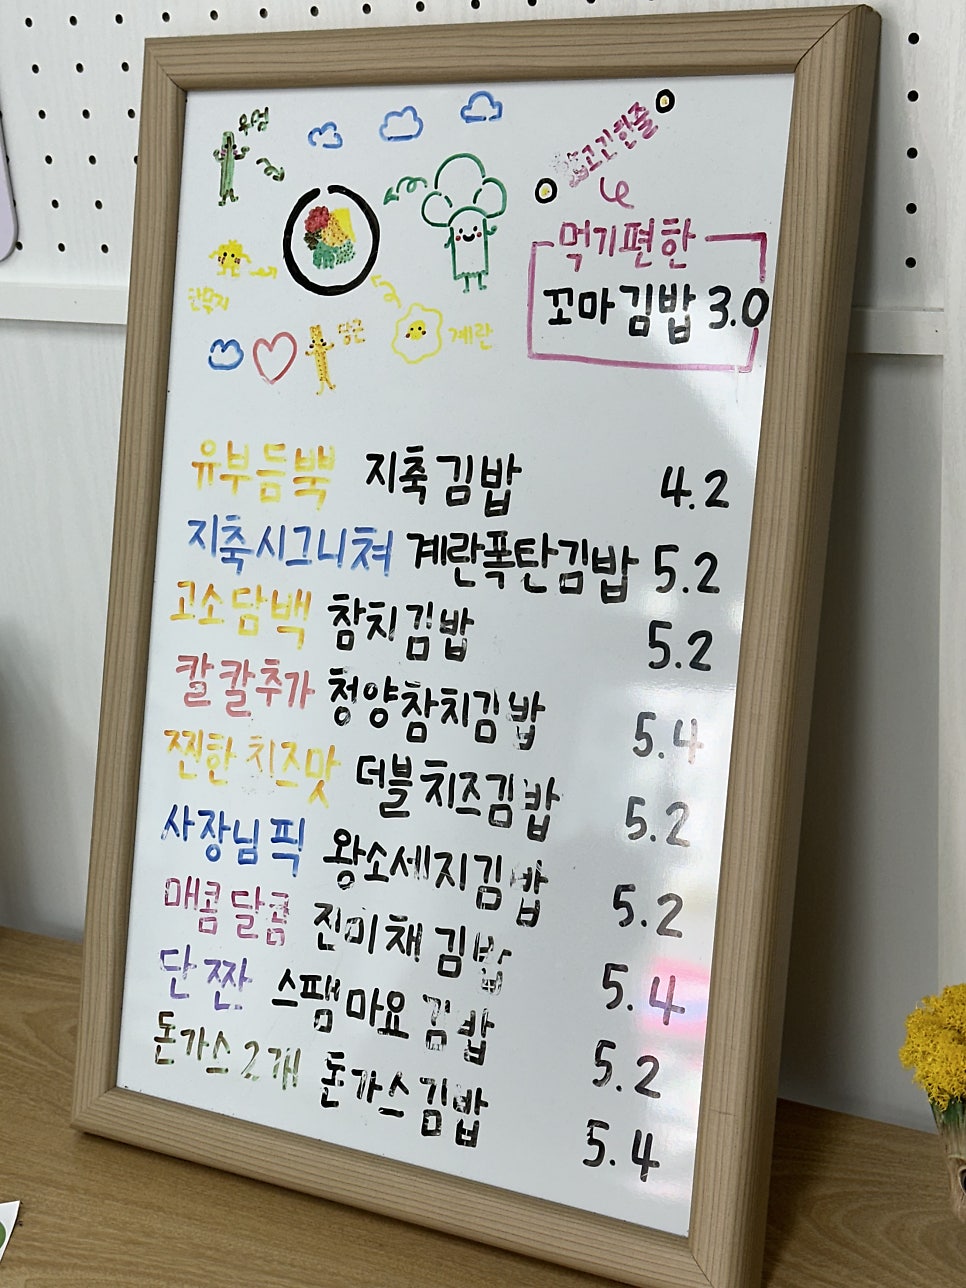 우엉
고긴한줄
먹기편한
꼬마김밥 3.0
단무지
당근
계란
유부듬뿍 지축김밥 4.2
지축시그니쳐 계란폭탄김밥 5.2
고소담백 참치김밥 5.2
칼칼추가 청양참치김밥 5.4
찐한치즈맛 더블치즈김밥 5.2
사장님픽 왕소세지김밥 5.2
매콤달콤 진미채김밥 5.4
단짠 스팸마요김밥 5.2
돈가스2개 돈가스김밥 5.4